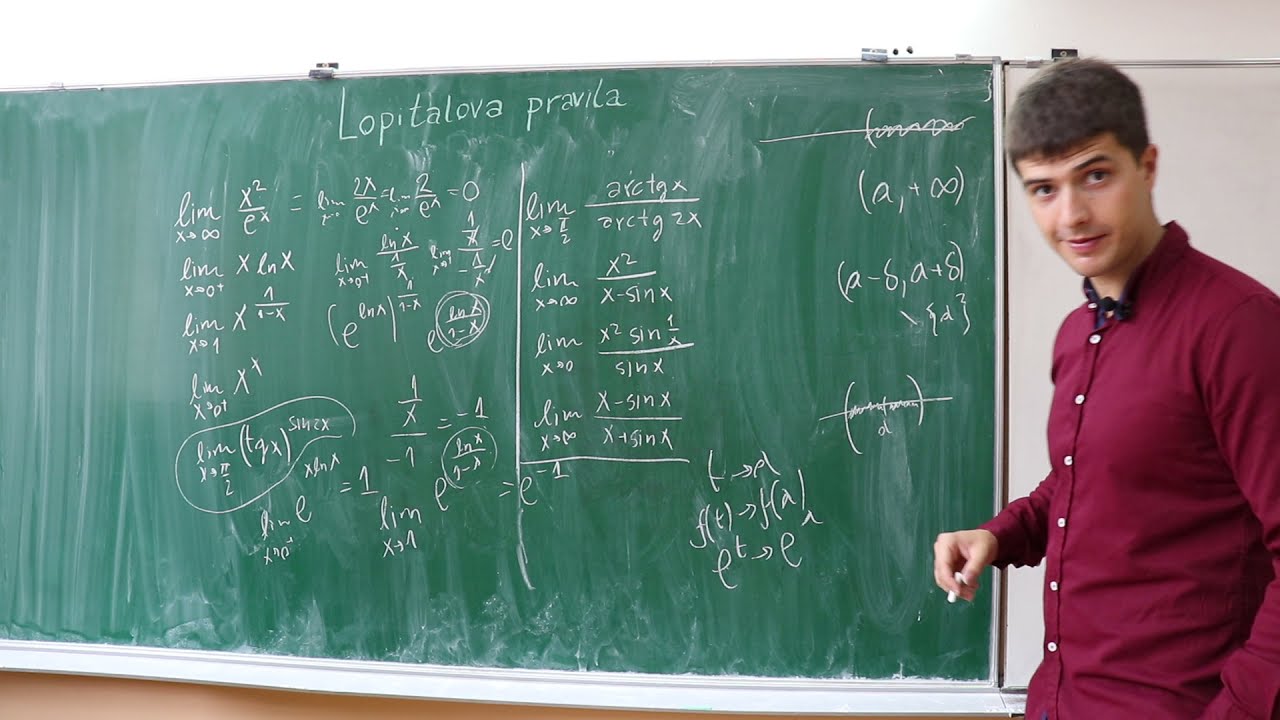 Lopitalova pravila
lim x→∞ x²/eˣ = lim 2x/eˣ = lim 2/eˣ = 0
lim x→0⁺ x ln x    lim x→0⁺ ln x/(1/x)    lim (1/x)/(-1/x²)
lim x→1 x^(1/(1-x))    (e^(ln x))^(1/(1-x))    e^(ln x/(1-x))
lim x→0⁺ xˣ
(1/x)/(-1) = -1
lim x→π/2 (tg x)^(sin 2x)
lim x→0⁺ e^(x ln x) = 1
lim x→1 e^(ln x/(1-x)) = e⁻¹
lim x→π/2 arctg x/arctg 2x
lim x→∞ x²/(x-sin x)
lim x→0 x² sin(1/x)/sin x
lim x→∞ (x-sin x)/(x+sin x)
t→a
f(t)→f(a)
eᵗ→eᵃ
(a, +∞)
(a-δ, a+δ)
\ {a}
a